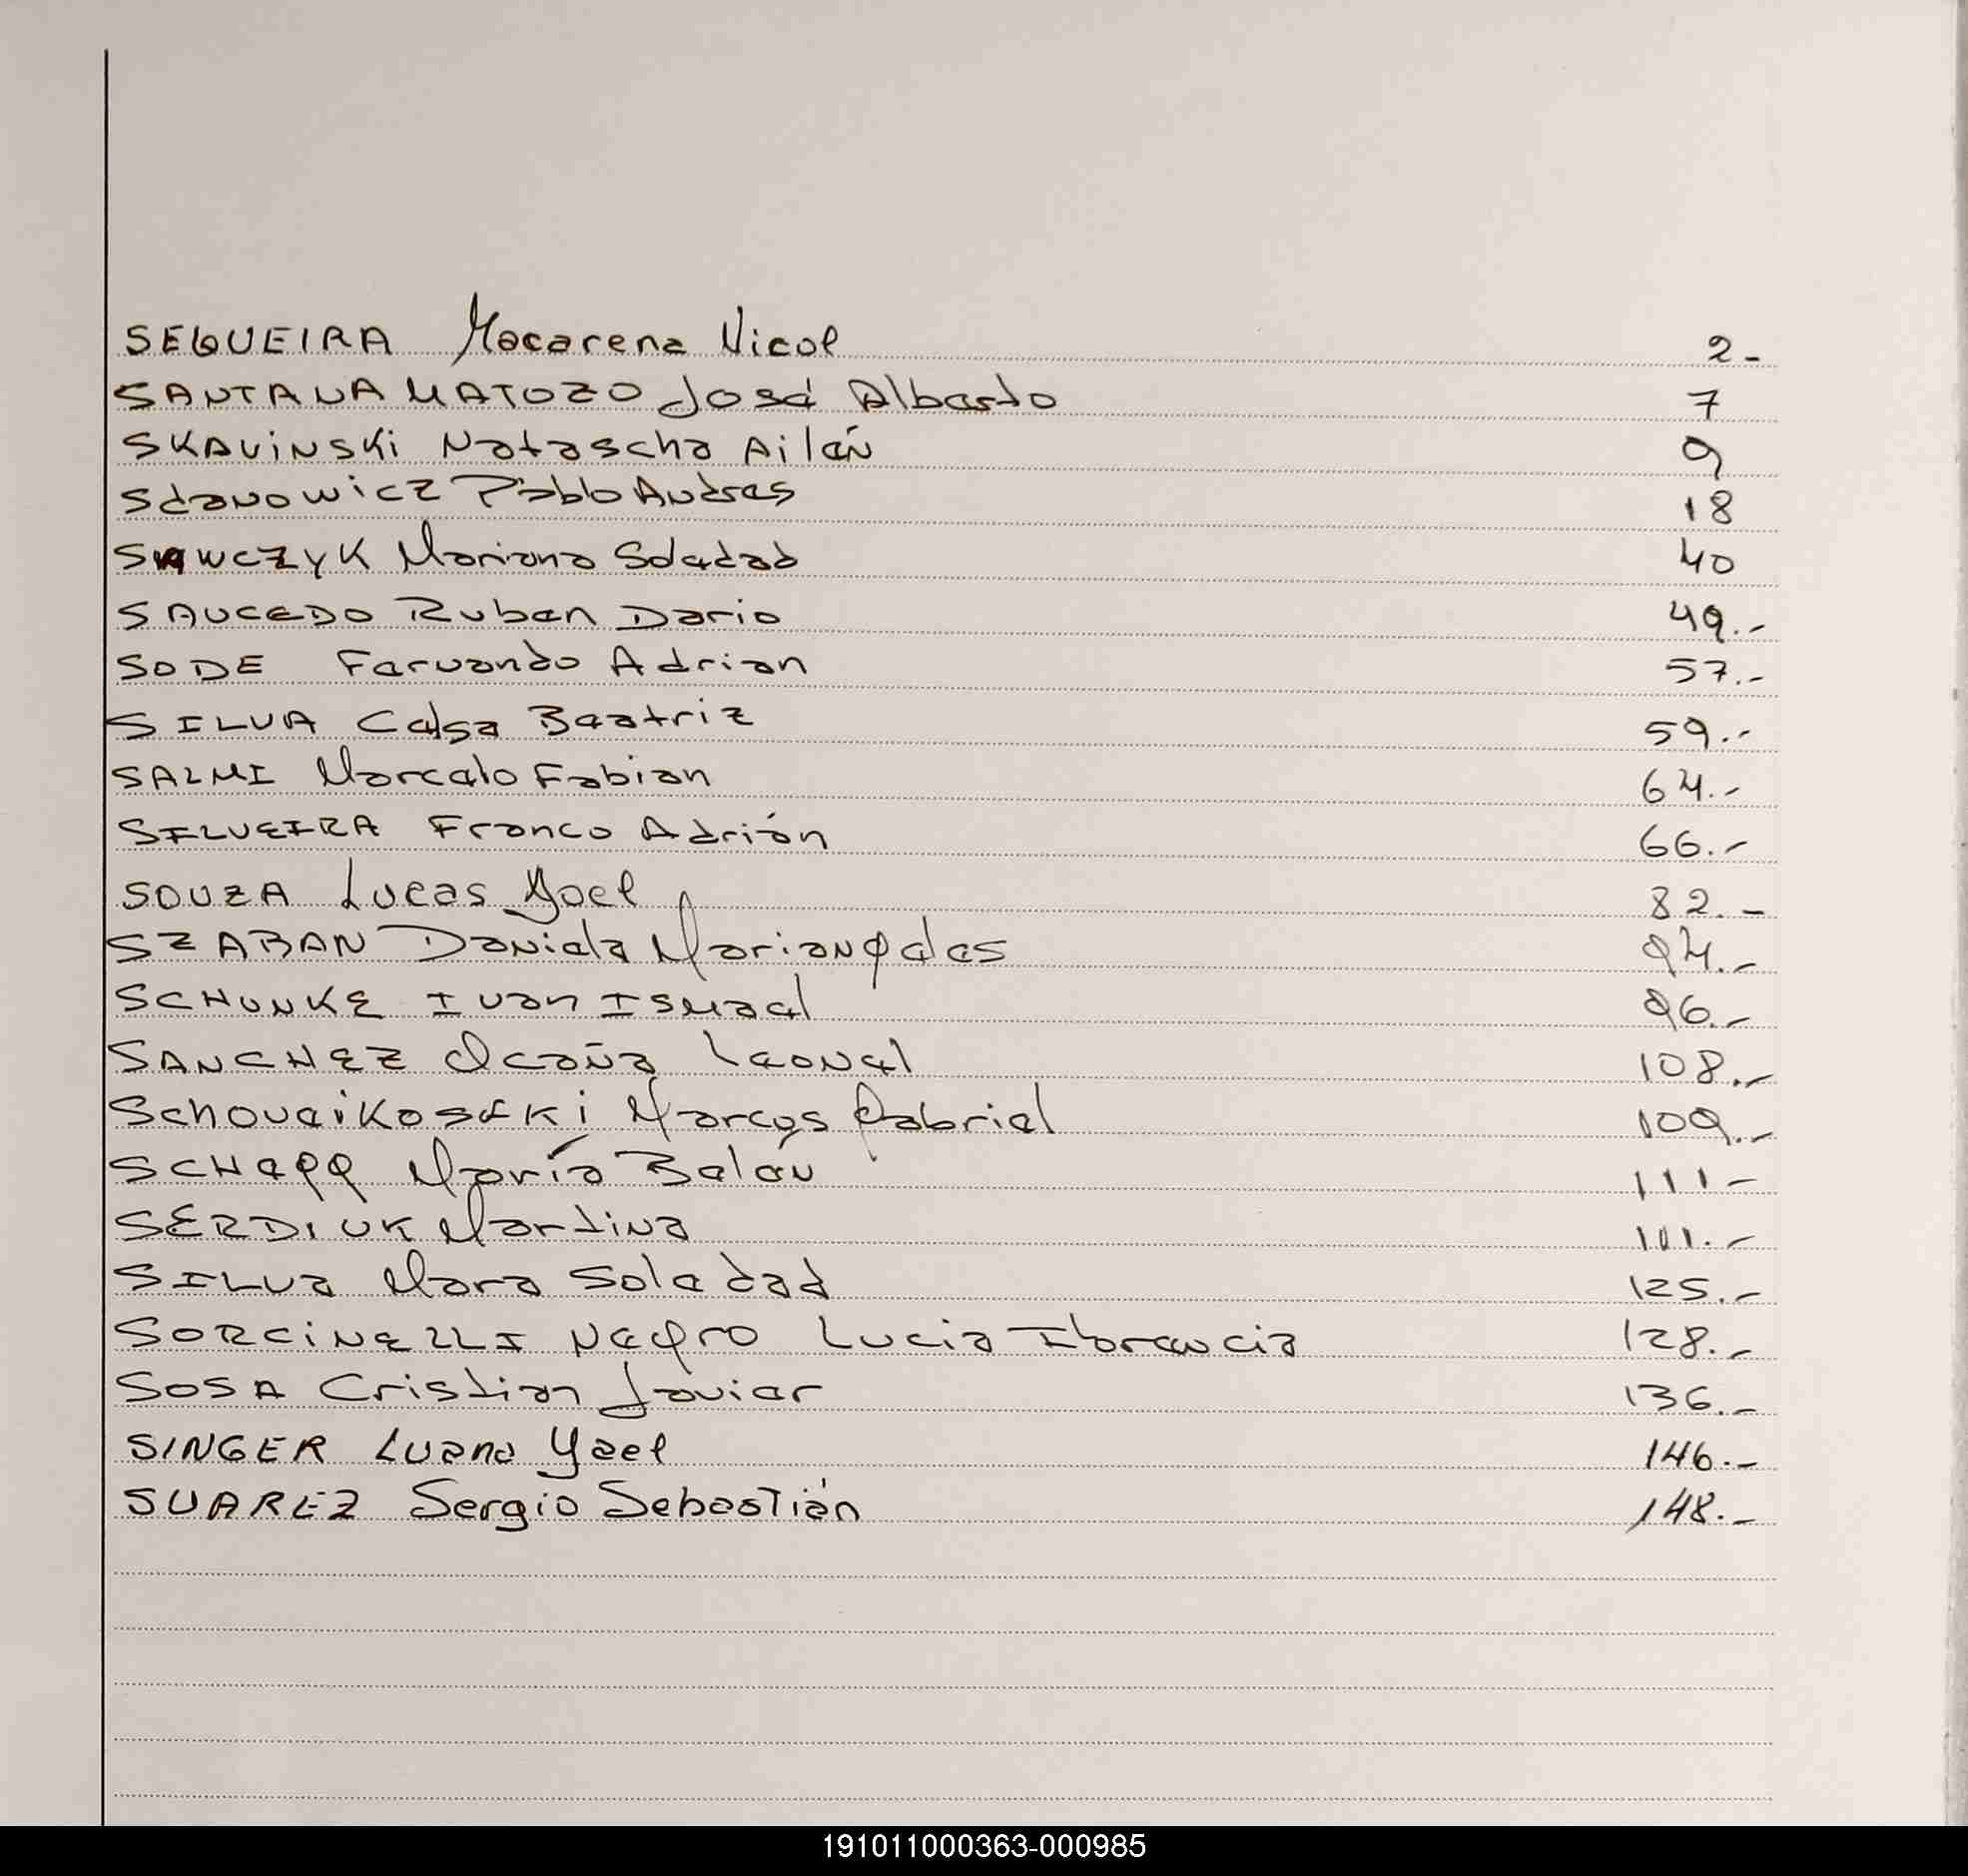 SEQUEIRA Macarena Nicol 2-
SANTANA MATOZO José Alberto 7
SKAVINSKI Natascha Ailén 9
Stanowicz Pablo Andres 18
SAWCZYK Mariana Soledad 40
SAUCEDO Ruben Dario 49.-
SODE Fernando Adrian 57.-
SILVA Celsa Beatriz 59.-
SALMI Marcelo Fabian 64.-
SILVEIRA Franco Adrián 66.-
SOUZA Lucas Yoel 82.-
SZABAN Daniela Mariangeles 94.-
SCHUNKE Ivan Ismael 96.-
SANCHEZ Ocaña Leonel 108.-
Marcos Gabriel 109.-
María Belén 111-
SERDIUK Martina 111.-
SILVA Mara Soledad 125.-
SORCINELLI Negro Lucia 128.-
SOSA Cristian Javier 136.-
SINGER Luana Yael 146.-
SUAREZ Sergio Sebastián 148.-
191011000363-000985